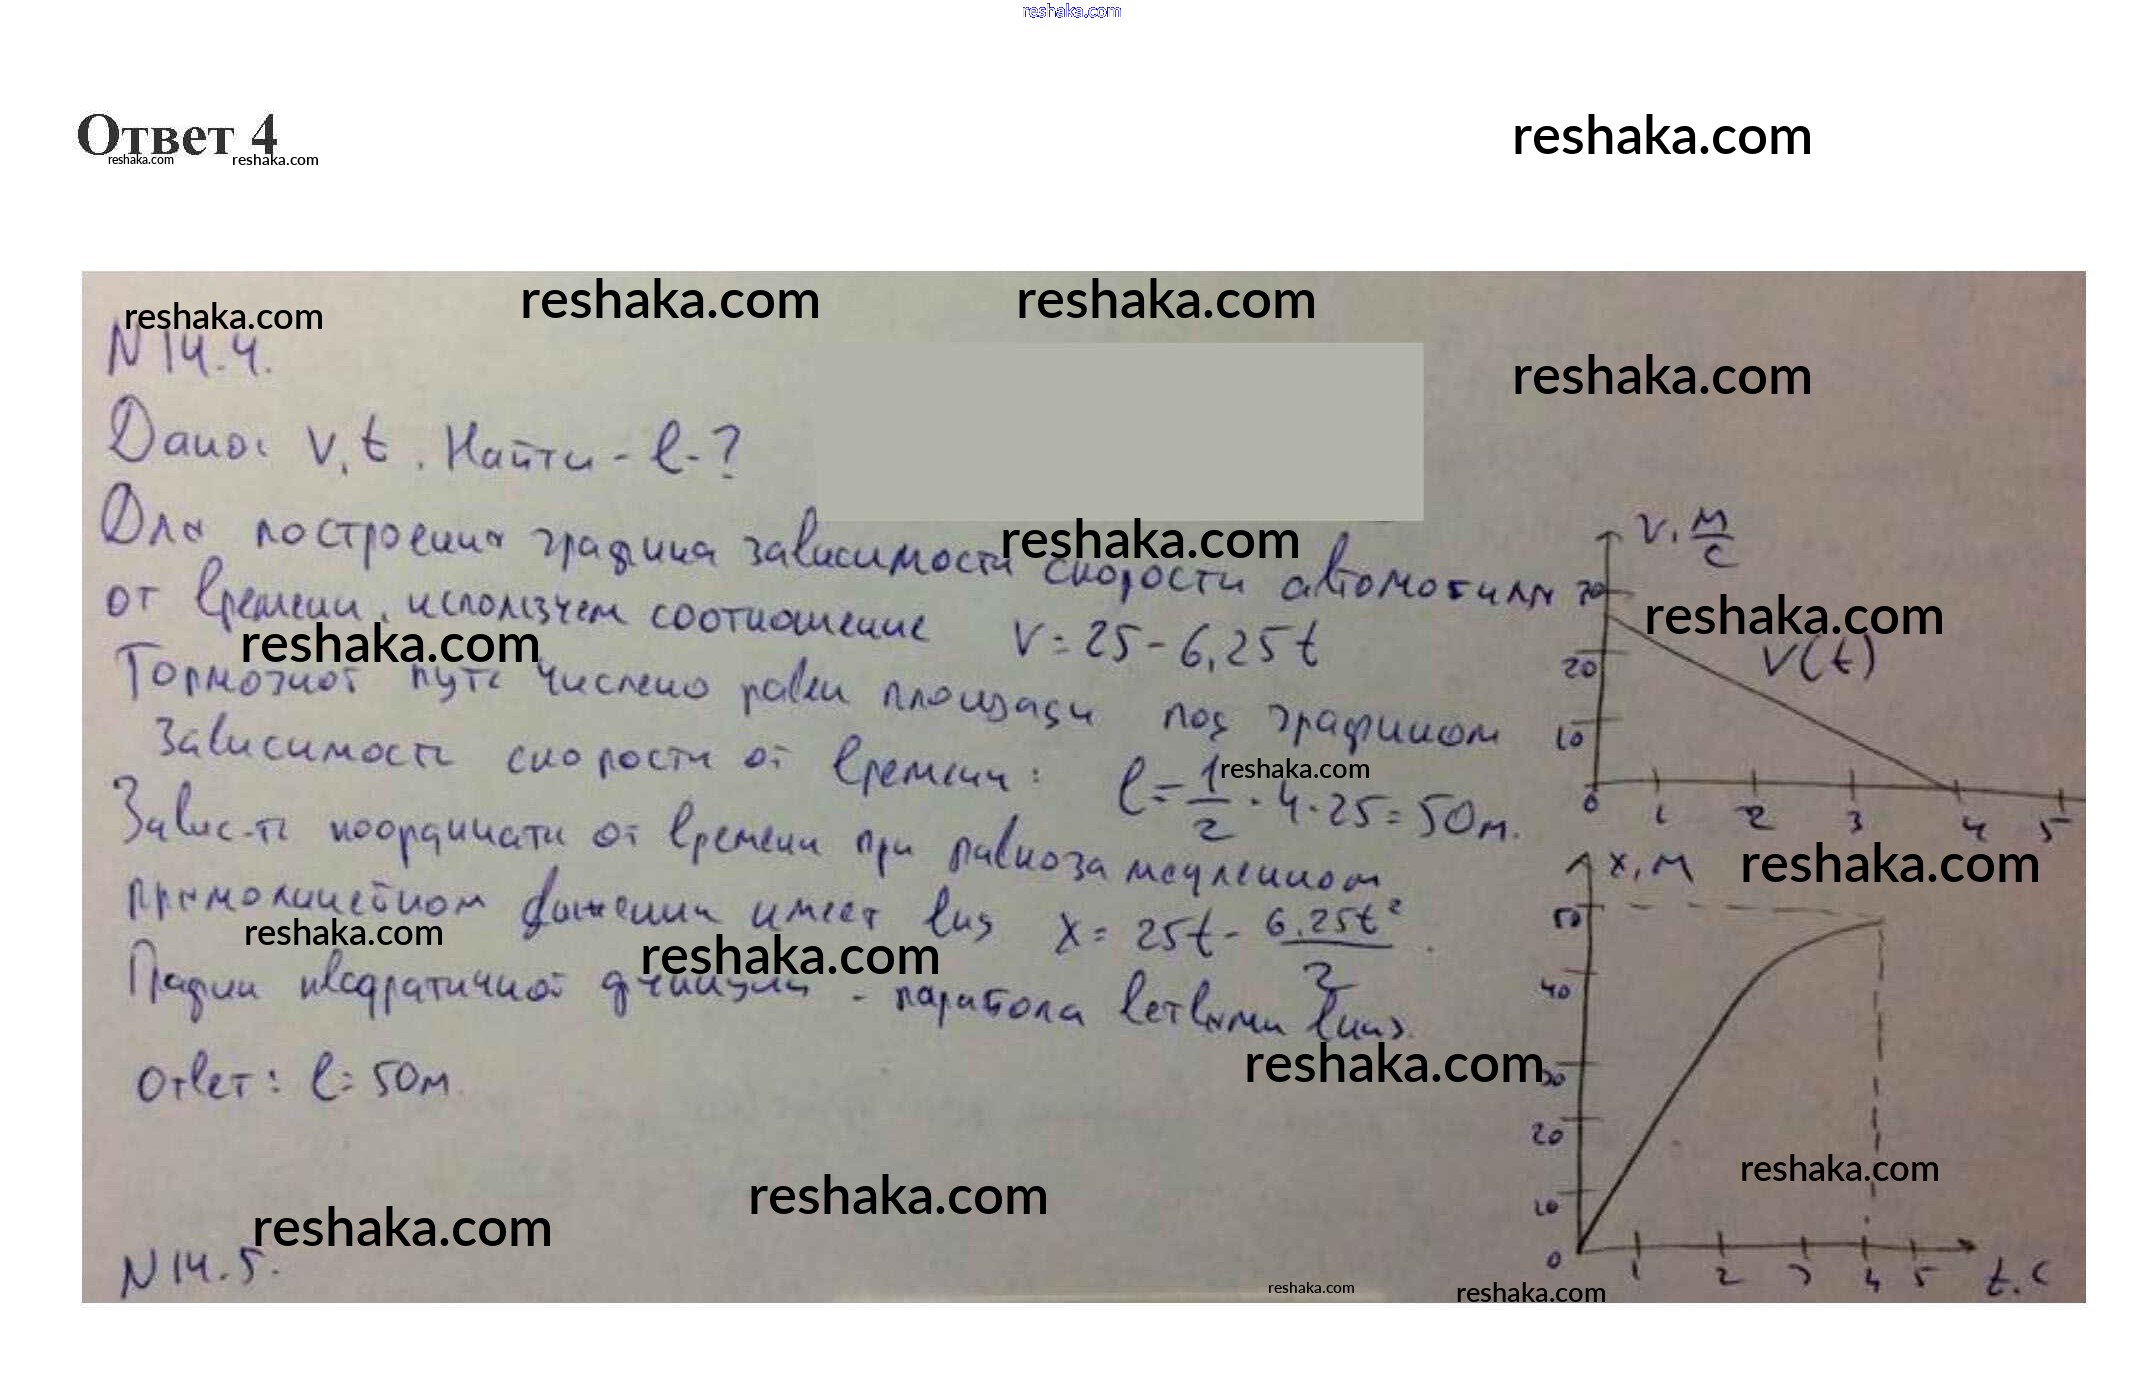 reshaka.com
Ответ 4
reshaka.com
reshaka.com reshaka.com
reshaka.com reshaka.com reshaka.com
N 14.4.
reshaka.com
Дано: v, t. Найти - l - ?
Для построения графика зависимости скорости автомобиля
reshaka.com
от времени, используем соотношение v = 25 - 6,25t
reshaka.com
Тормозной путь числено равен площади под графиком
зависимости скорости от времени: l = 1/2 · 4 · 25 = 50м.
reshaka.com
Завис-ть координаты от времени при равнозамедленном
прямолинейном движении имеет вид x = 25t - 6,25t²/2.
reshaka.com reshaka.com
График квадратичной функции - парабола ветвями вниз.
reshaka.com
Ответ: l = 50м.
reshaka.com
reshaka.com
N 14.5.
v, м/с
30
reshaka.com
v(t)
20
10
0 1 2 3 4 5
x, м
reshaka.com
50
40
30
20
reshaka.com
10
0 1 2 3 4 5 t, с
reshaka.com reshaka.com